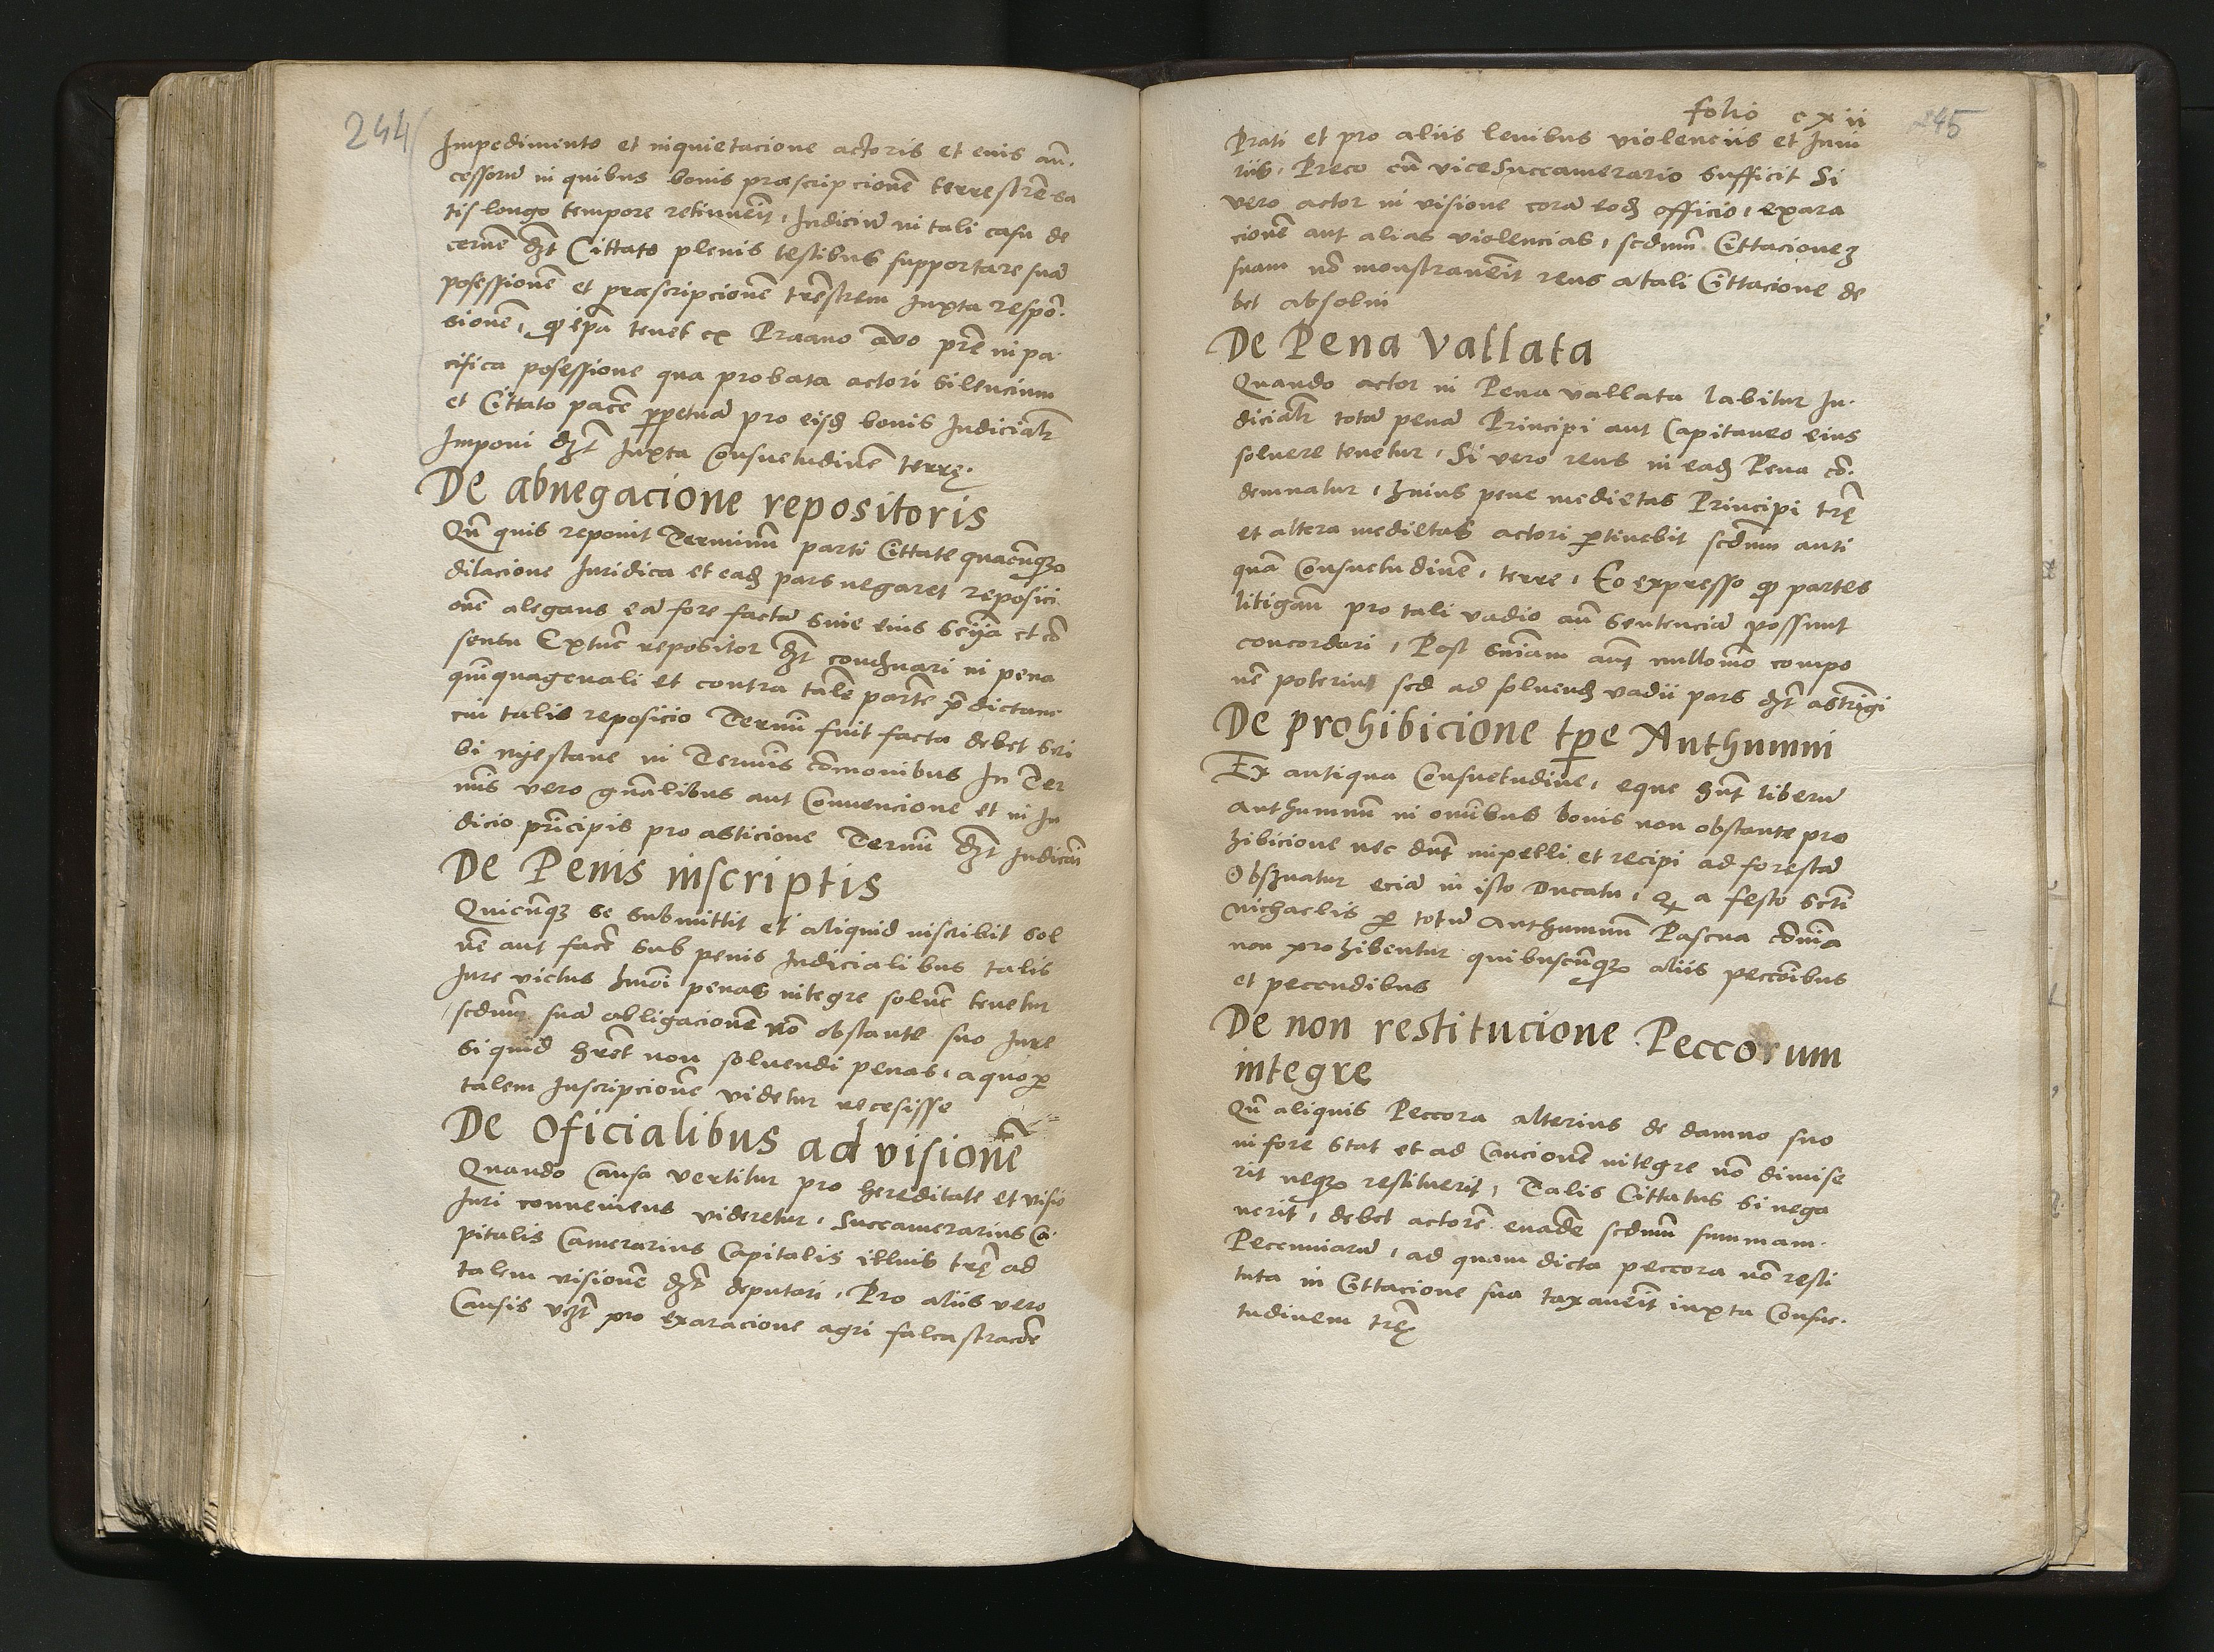 244
Impedimento et inquietacione actoris et euis añ.
cessorũ in quibus bonis præscripcionẽ terrestrẽ sa
tis longo tempore retinuerit, Iudiciũ in tali casu de
cernẽ dʒt Cittato plenis testibus supportare suã
posessionẽ et præscripcionẽ trẽstrem Iuxta respõ.
sionẽ, qͥ ipa tenet ex Praauo auo prẽ in pa
cifica posessione qua probata actori silencium
et Cittato pacẽ ꝑpetuã pro eisdʒ bonis Iudicialr̃
Imponi dʒt Iuxta Consuetudinẽ terrę.
De abnegacione repositoris
Qñ quis reponit Terminũ parti Cittate quacũqʒ
dilacione Iuridica et eadʒ pars negaret reposici
onẽ alegans eã fore factã sine eius scijã et cõ
sensu Extunc repositor dʒt condʒnari in pena
quinquagenali et contra talẽ partẽ p̃dictam
cui talis reposicio Termĩ fuit facta debet scri
bi niestane in Termis cõmonibus In Ter
mis vero gñalibus aut Conuencione et in Iu
dicio prĩcipis pro asticione Termĩ dʒt Iudicari
De Penis inscriptis
Quicũqʒ se submittit et aliquid inscribit sol
uẽ aut facẽ sub penis Iudicialibus talis
Iure victus hmõi penas integre soluẽ tenetur
scdum suã obligacionẽ nõ obstante suo Iure
si quid hret non soluendi penas, a quo ꝑ
talem Inscripcionẽ videtur recesisse
De Oficialibus ad visionẽ
Quando Causa vertitur pro hereditate et visio
Iuri conueniens videretur, Succamerarius Ca.
pitalis Camerarius Capitalis illius trę ad
talem visionẽ dʒt deputari, Pro aliis vero
Causis vʒt pro exaracione agri falcastracõe
folio cxii
245
Prati et pro aliis leuibus violenciis et Iniu
riis, Preco cũ viceSuccamerario sufficit Si
vero actor in visione corã eodʒ officio, exara
cionẽ aut alias violencias, scdum Cittacioneʒ
suam nõ monstrauerit reus a tali Cittacione de
bet absolui
De Pena Vallata
Quando actor in Pena vallata labitur Iu.
dicialr̃ totã penã Principi aut Capitaneo eius
soluere tenetur, Si vero reus in eadʒ Pena cõ.
demnatur, huius pene medietas Principi trę
et altera medietas actori ꝑtinebit scdum anti
quã Consuetudinẽ, terre, Eo expresso qͥ partes
litigañ pro tali vadio añ sentenciã possunt
concordari, Post sniam aut nullomõ compo
nẽ poterint sed ad soluendʒ vadii pars dʒt astringi
De prohibicione tꝑe Anthumni
Ex antiqua Consuetudine, eque hñt liberũ
anthumnũ in omibus bonis non obstante pro
hibicione nec dñt impelli et recipi ad forestã
Obsʒuatur eciã in isto Ducatu, qꝫ a festo scti
Michaelis ꝑ totũ anthumnũ Pascua cõmia
non prohibentur quibuscũqʒ aliis peccoribus
et pecudibus
De non restitucione Peccorum
integre
Qñ aliquis Peccora alterius de damno suo
in fore stat et ad Caucionẽ integre nõ dimise
rit neqʒ restituerit, Talis Cittatus si nega
uerit, debet actorẽ euadẽ scdum summam.
Peccuniarũ, ad quam dicta peccora nõ resti
tuta in Cittacione sua taxauerit iuxta Consue.
tudinem trę